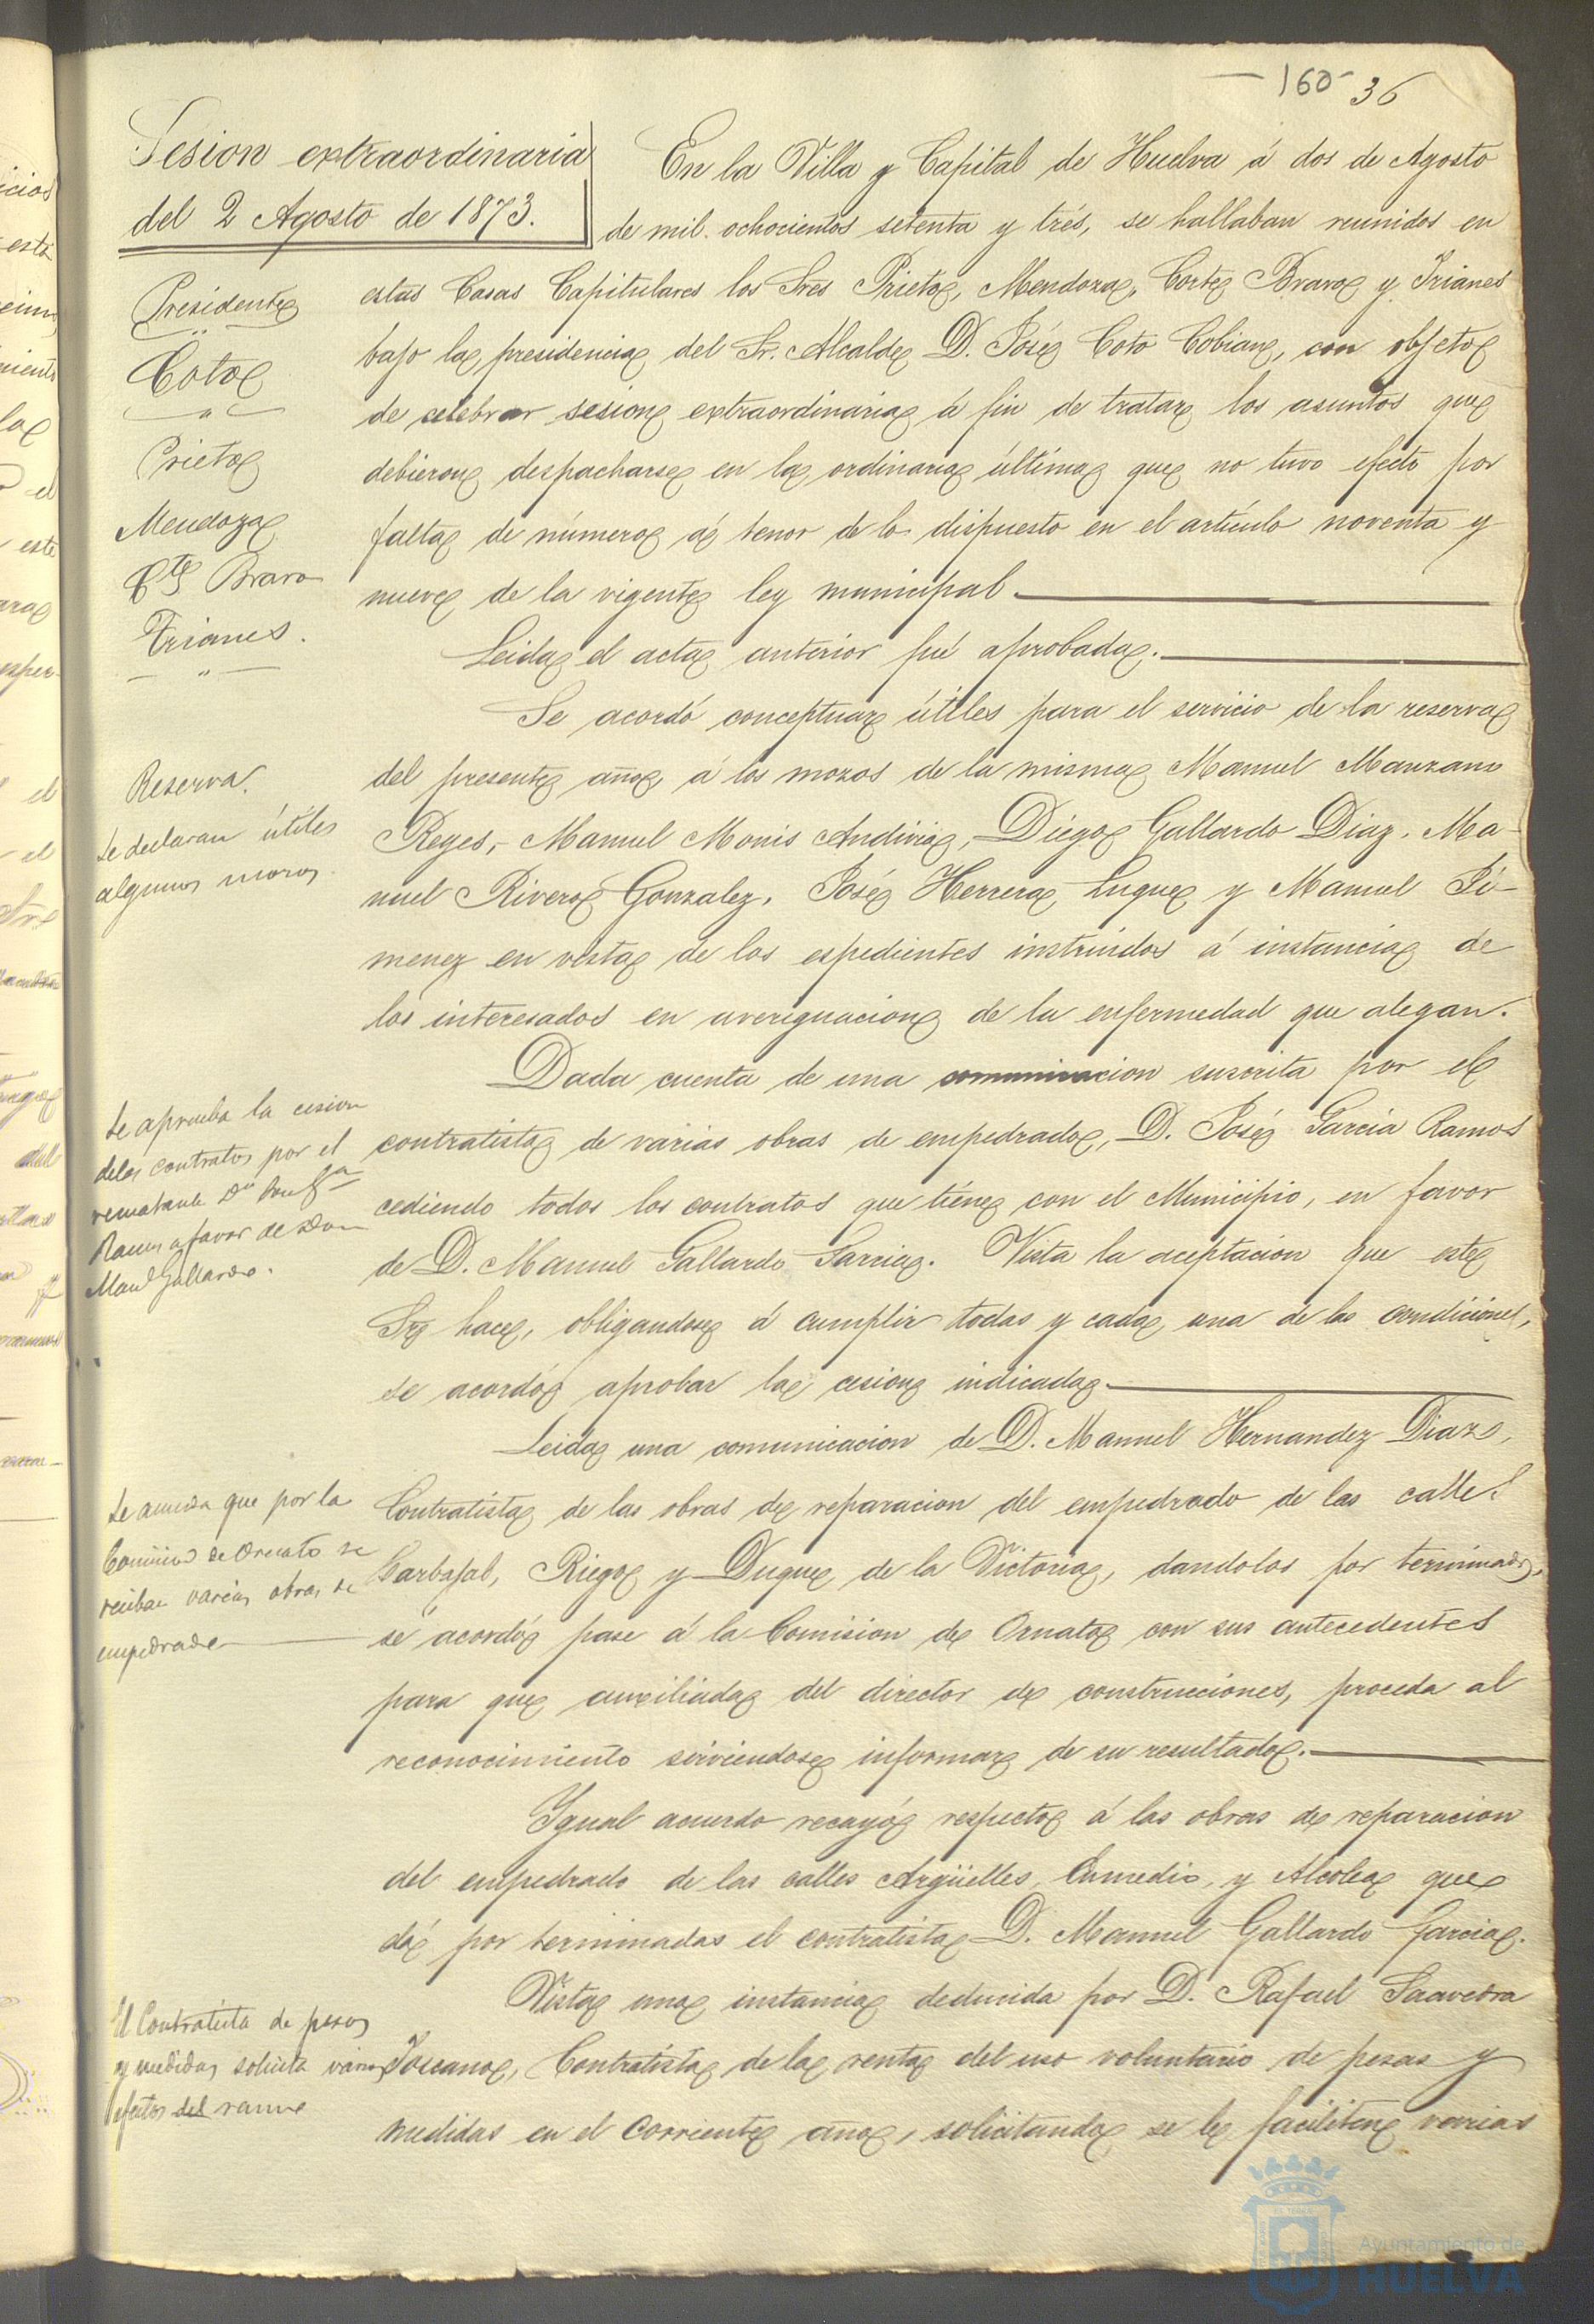 160 36
Sesion extraordinaria
del 2 Agosto de 1873.
En la Villa y Capital de Huelva á dos de Agosto
de mil ochocientos setenta y tres, se hallaban reunidos en
Presidente
Coto
Prieto
Mendoza
Ctes Bravo
Trianes.
estas Casas Capitulares los Sres Prieto, Mendoza, Cortes Bravo y Trianes
bajo la presidencia del Sr. Alcalde D. José Coto Cobian, con objeto
de celebrar sesion extraordinaria á fin de tratar los asuntos que
debieron despacharse en la ordinaria última que no tuvo efecto por
falta de número á tenor de lo dispuesto en el artículo noventa y
nueve de la vigente ley municipal.
Leida el acta anterior fué aprobada.
Reserva.
Se declaran útiles
algunos mozos
Se acordó conceptuar útiles para el servicio de la reserva
del presente año, á los mozos de la misma Manuel Manzano
Reyes, Manuel Monis Andivia, Diego Gallardo Diaz, Ma-
nuel Rivero Gonzalez, José Herrera Luque y Manuel Ji-
menez en vista de los espedientes instruidos á instancia de
los interesados en averiguacion de la enfermedad que alegan.
Se aprueba la cesion
de los contratos por el
rematante Dn José Gra
Ramos a favor de Don
Manl Gallardo.
Dada cuenta de una comunicacion suscrita por el
contratista de varias obras de empedrado, D. José Garcia Ramos
cediendo todos los contratos que tiene con el Municipio, en favor
de D. Manuel Gallardo Garcia. Vista la aceptacion que este
Sr hace, obligandose á cumplir todas y cada una de las condiciones,
se acordó aprobar la cesion indicada.
Se acuerda que por la
Comision de Ornato se
reciban varias obras de
empedrado
Leida una comunicacion de D. Manuel Hernandez Diaz,
Contratista de las obras de reparacion del empedrado de las calles
Carbajal, Riego y Duque de la Victoria, dandolas por terminadas,
se acordó pase á la Comision de Ornato con sus antecedentes
para que auxiliada del director de construcciones, proceda al
reconocimiento sirviendose informar de su resultado.
Igual acuerdo recayó respecto á las obras de reparacion
del empedrado de las calles Argüelles, Enmedio, y Alcolea que
dá por terminadas el contratista D. Manuel Gallardo Garcia.
El Contratista de pesas
y medidas solicita varios
efectos del ramo
Vista una instancia deducida por D. Rafael Saavedra
Toscano, Contratista de la renta del uso voluntario de pesas y
medidas en el corriente año, solicitando se le faciliten varias
Ayuntamiento de
HUELVA